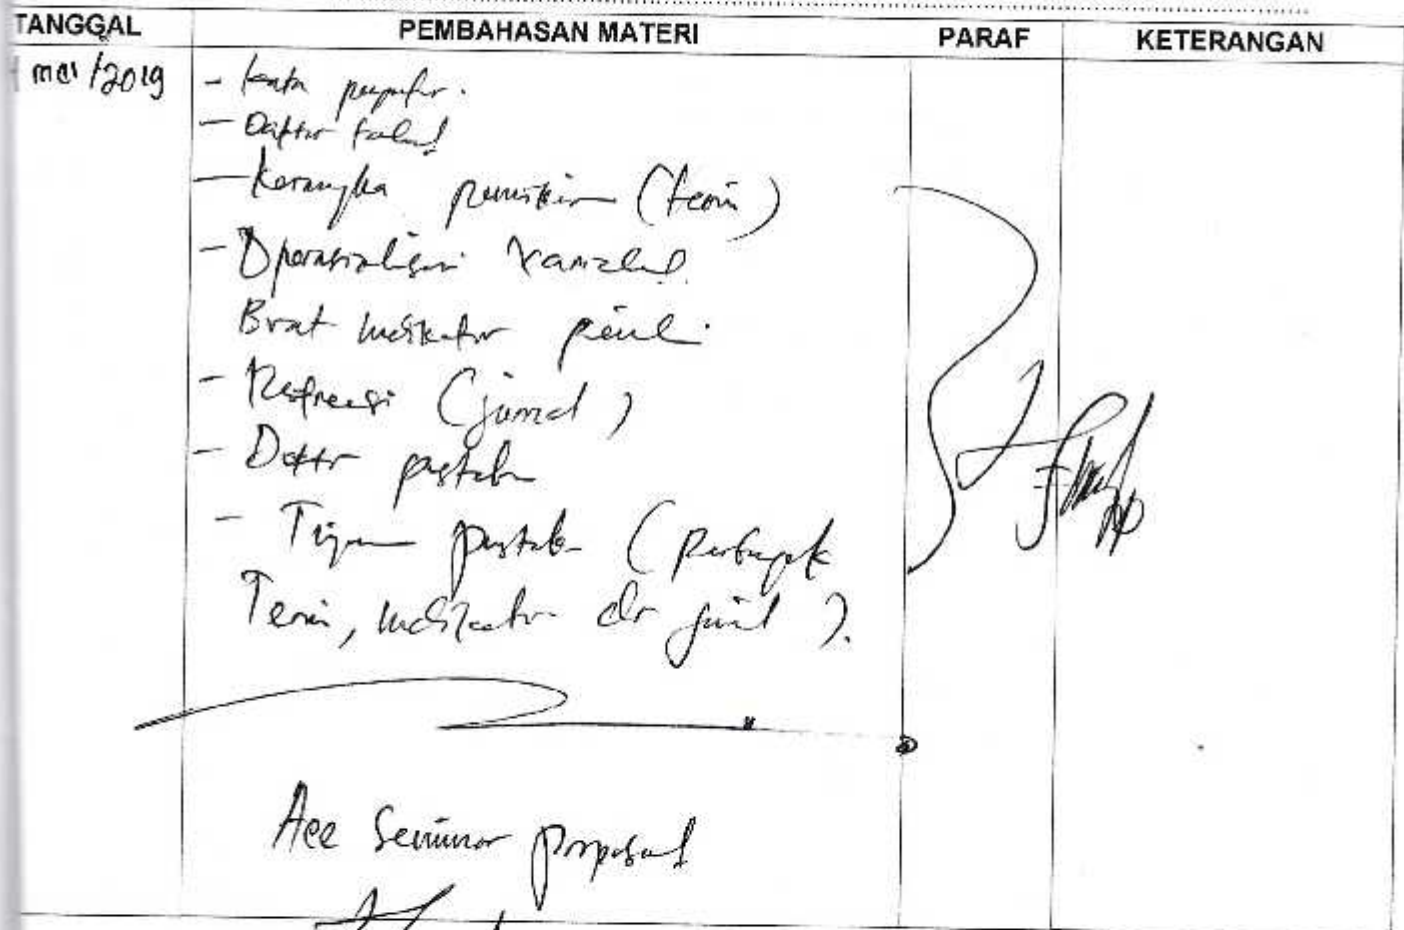 TANGGAL PEMBAHASAN MATERI PARAF KETERANGAN
mei /2019
- Kata
- Daftar Tabel
- Kerangka pemikiran (teori)
- Operasionalisasi Variabel
Buat indikator
- Referensi (jurnal)
- Daftar pustaka
- Tinjauan pustaka (Perbanyak
Teori, indikator dr jurnal).
Acc Seminar proposal